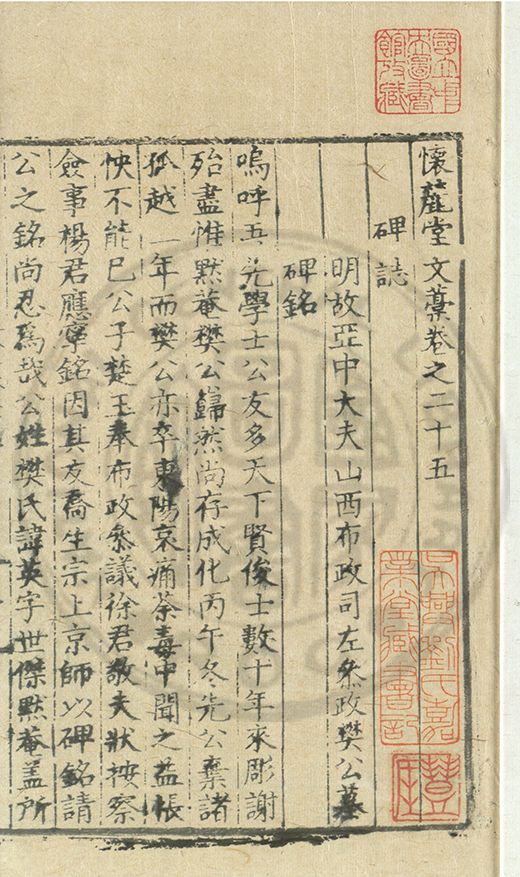 國立中央圖書館收藏
懷麓堂文藁卷之二十五
碑誌
明故亞中大夫山西布政司左叅政樊公墓
碑銘
嗚呼吾先學士公友多天下賢俊士數十年來彫謝
殆盡惟黙菴樊公巋然尚存成化丙午冬先公棄諸
孤越一年而樊公亦卒東陽哀痛荼毒中聞之益悵
怏不能已公子楚玉奉布政叅議徐君敬夫狀按察
僉事楊君應寧銘因其友喬生宗上京師以碑銘請
公之銘尚忍爲哉公姓樊氏諱英字世傑黙菴盖所
吳興劉氏嘉業堂藏書記